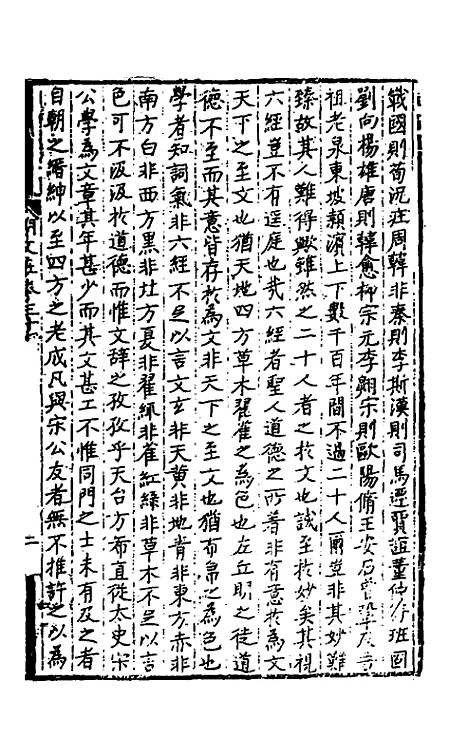 戰國則荀況莊周韓非秦則李斯漢則司馬遷賈誼董仲舒班固
劉向楊雄唐則韓愈柳宗元李翱宋則歐陽脩王安石曾鞏及吾
祖老泉東坡潁濱上下數千百年間不過二十人爾豈非其妙難
臻故其人難得歟雖然之二十人者之於文也誠至於妙矣其視
六經豈不有逕庭也哉六經者聖人道德之所著非有意於為文
天下之至文也猶天地四方草木翟雀之為色也左丘明之徒道
德不至而其意皆存於為文非天下之至文也猶布帛之為色也
學者知詞氣非六經不足以言文玄非天黃非地青非東方赤非
南方白非西方黑非北方夏非翟緅非雀紅綠非草木不足以言
色可不汲汲於道德而惟文辭之孜孜乎天台方希直從太史宋
公學為文章其年甚少而其文甚工不惟同門之士未有及之者
自朝之縉紳以至四方之老成凡與宋公友者無不推許之以為
明文在卷三十
二